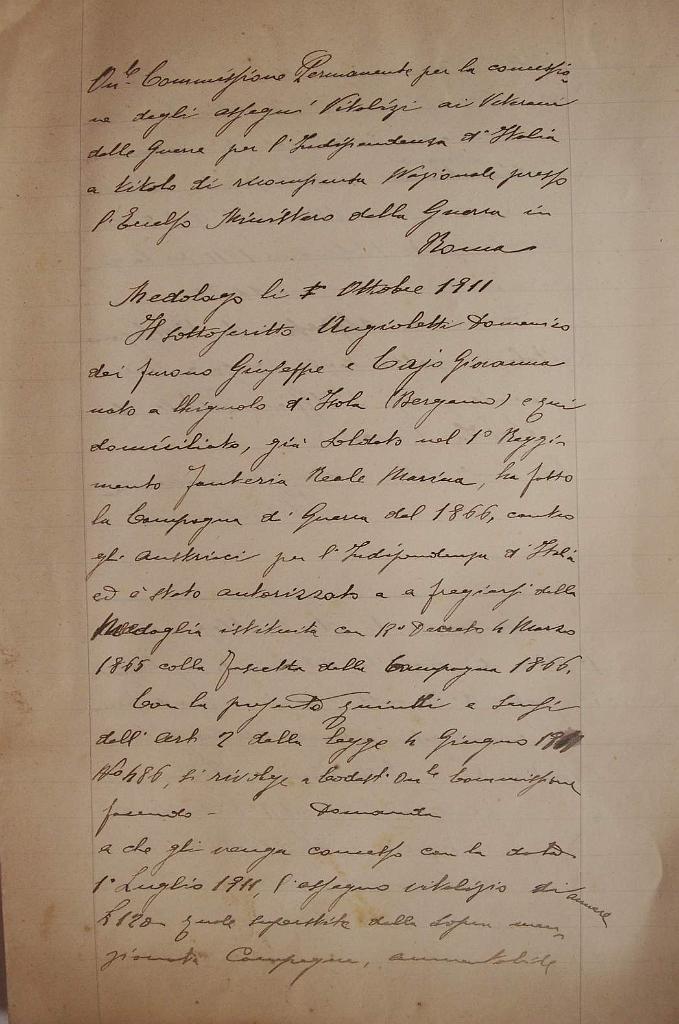 On.le Commissione Permanente per la concessio-
ne degli assegni Vitalizi ai Veterani
delle Guerre per l'Indipendenza d'Italia
a titolo di ricompensa Nazionale presso
l'Eccelso Ministero della Guerra in
Roma
Medolago li 1 Ottobre 1911
Il sottoscritto Angioletti Domenico
dei furono Giuseppe e Cajo Giovanna
nato a Chignolo d'Isola (Bergamo) e qui
domiciliato, già Soldato nel 1° Reggi-
mento Fanteria Reale Marina, ha fatto
la Campagna di Guerra del 1866, contro
gli Austriaci per l'Indipendenza d'Italia
ed è stato autorizzato a a fregiarsi della
Medaglia istituita con R° Decreto 4 Marzo
1865 colla Fascetta della Campagna 1866.
Con la presente quindi e sensi
dell'art 2 della legge 4 Giugno 1911
N° 486, si rivolge a Codest' On.le Commissione
facendo - Domanda
a che gli venga concesso con la data
1° Luglio 1911, l'assegno vitalizio di annue
£ 120 quale superstite della sopra men-
zionata Campagna, aumentabile